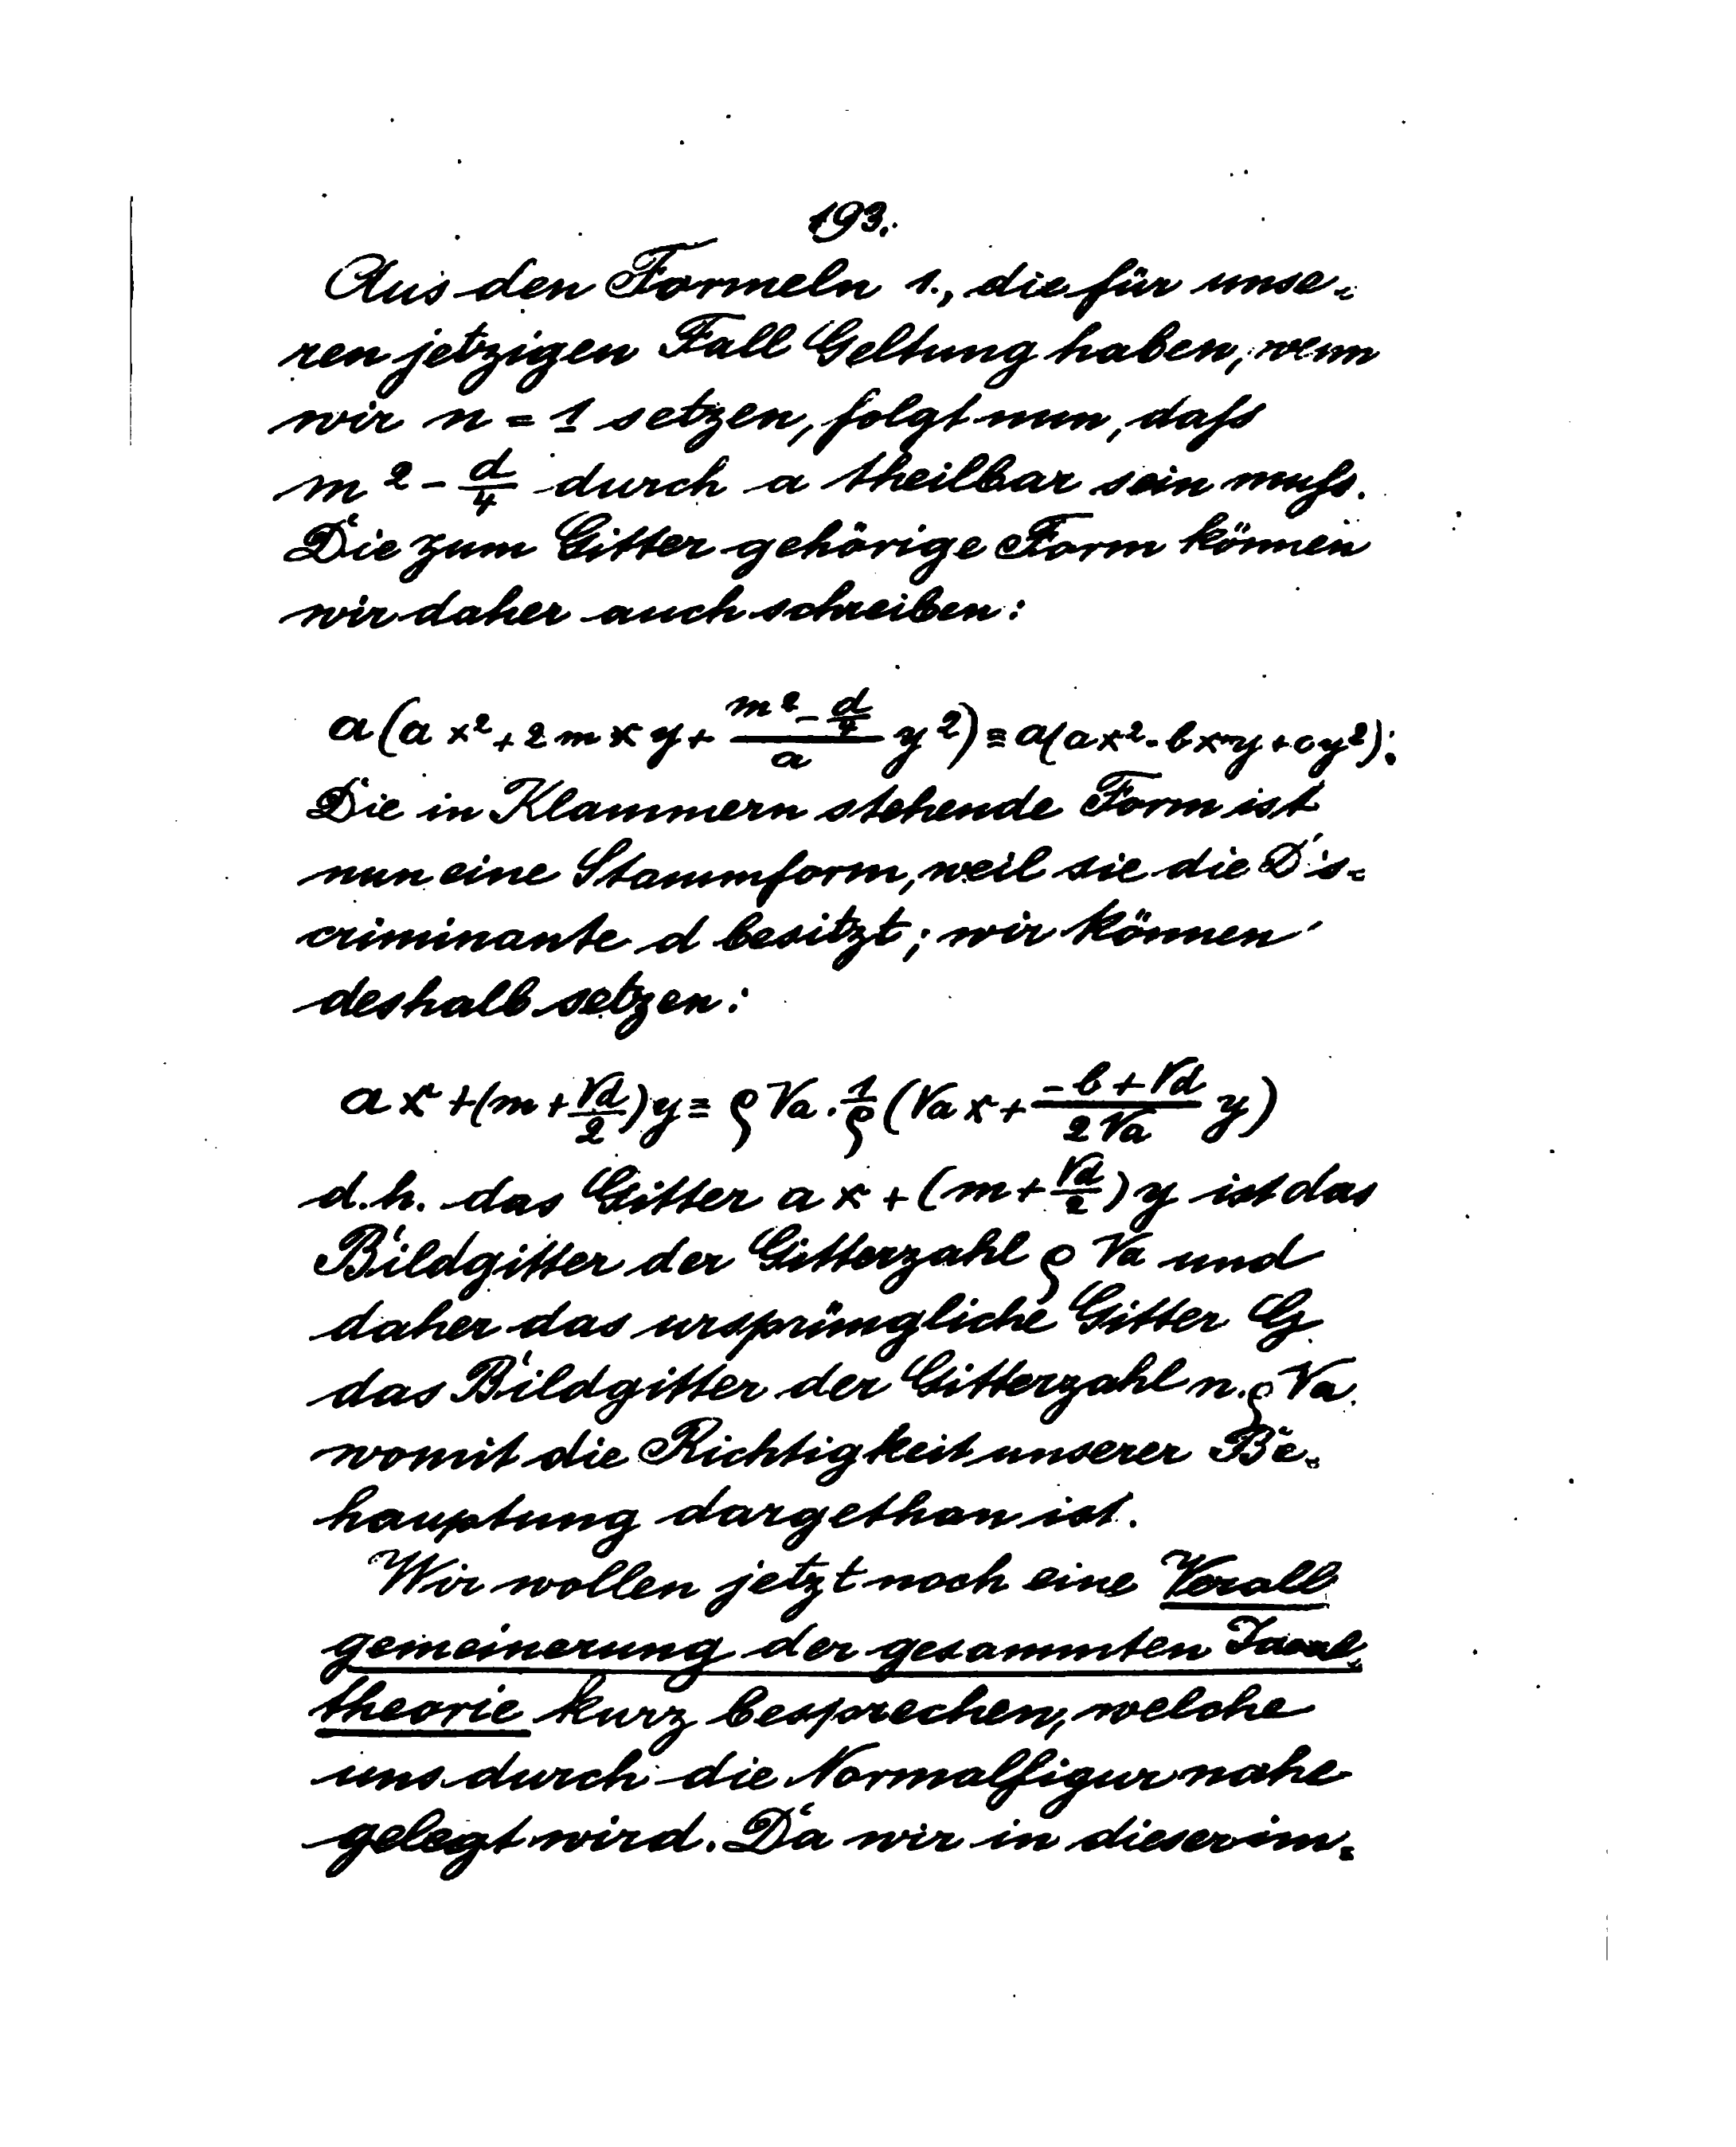 193.
Aus den Formeln 1., die für unse-
ren jetzigen Fall Geltung haben, wenn
wir n = 1 setzen, folgt nun, dass
m² - d/4 durch a theilbar sein muss.
Die zum Gitter gehörige Form können
wir daher auch schreiben:
a(ax² + 2mxy + (m² - d/4)/a y²) = a(ax² - bxy + cy²);
Die in Klammern stehende Form ist
nun eine Stammform, weil sie die Dis-
criminante d besitzt; wir können
deshalb setzen:
ax + (m + √d/2)y = ρ√a · 1/ρ (√a x + (-b + √d)/(2√a) y)
d.h. das Gitter ax + (m + √d/2)y ist das
Bildgitter der Gitterzahl ρ√a und
daher das ursprüngliche Gitter G
das Bildgitter der Gitterzahl n·ρ√a.
womit die Richtigkeit unserer Be-
hauptung dargethan ist.
Wir wollen jetzt noch eine Verall
gemeinerung der gesammten Ideal-
theorie kurz besprechen, welche
uns durch die Normalfigur nahe
gelegt wird. Da wir in dieser im-